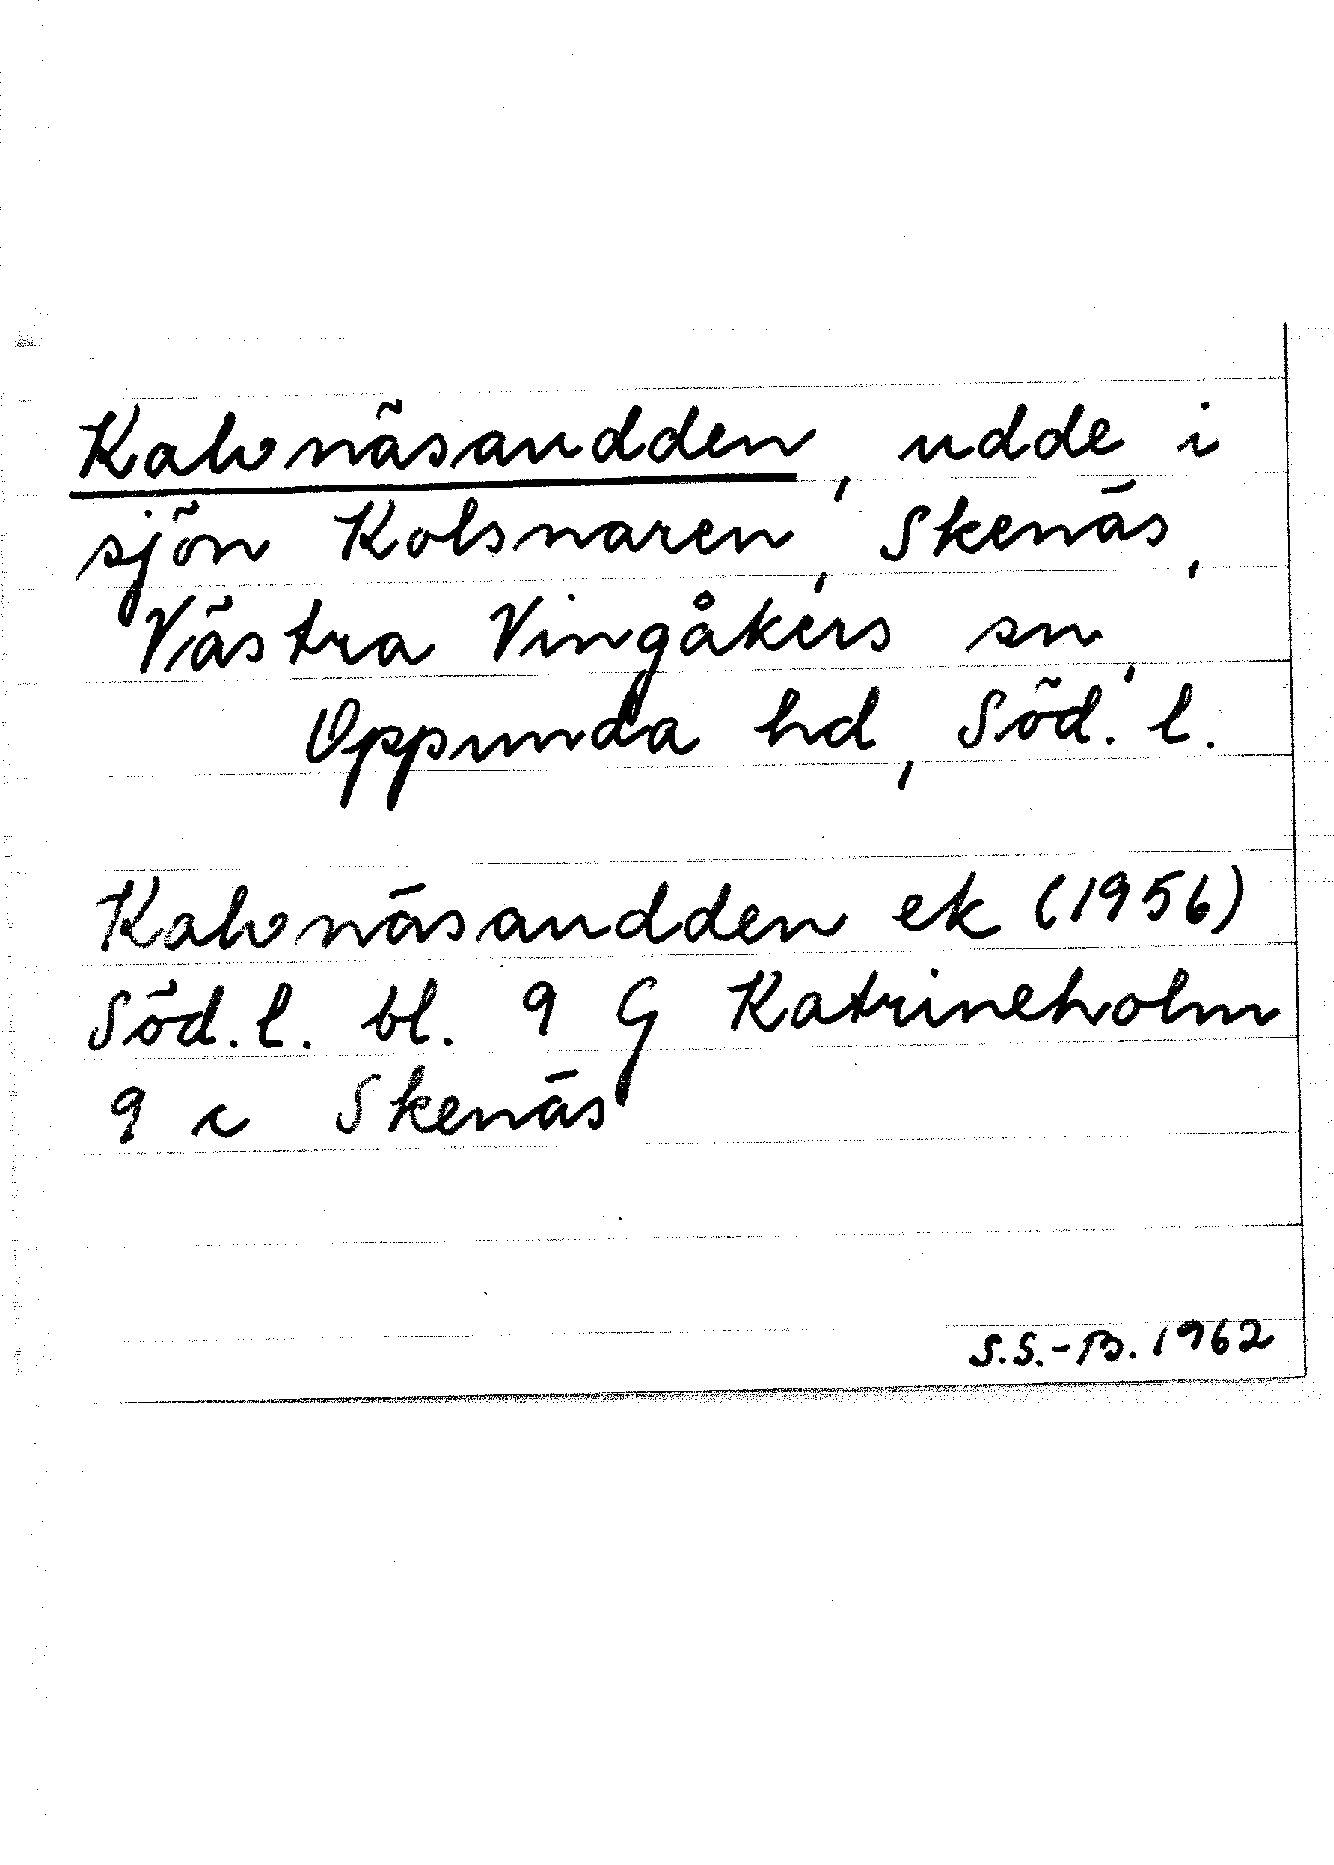 Kalvnäsaudden, udde i
sjön Kolsnaren, Skenäs,
Västra Vingåkers sn,
Oppunda hd, Söd. l.
Kalvnäsaudden ek (1956)
Söd. l. bl. 9 G Katrineholm
9 c Skenäs
S.S.-B. 1962